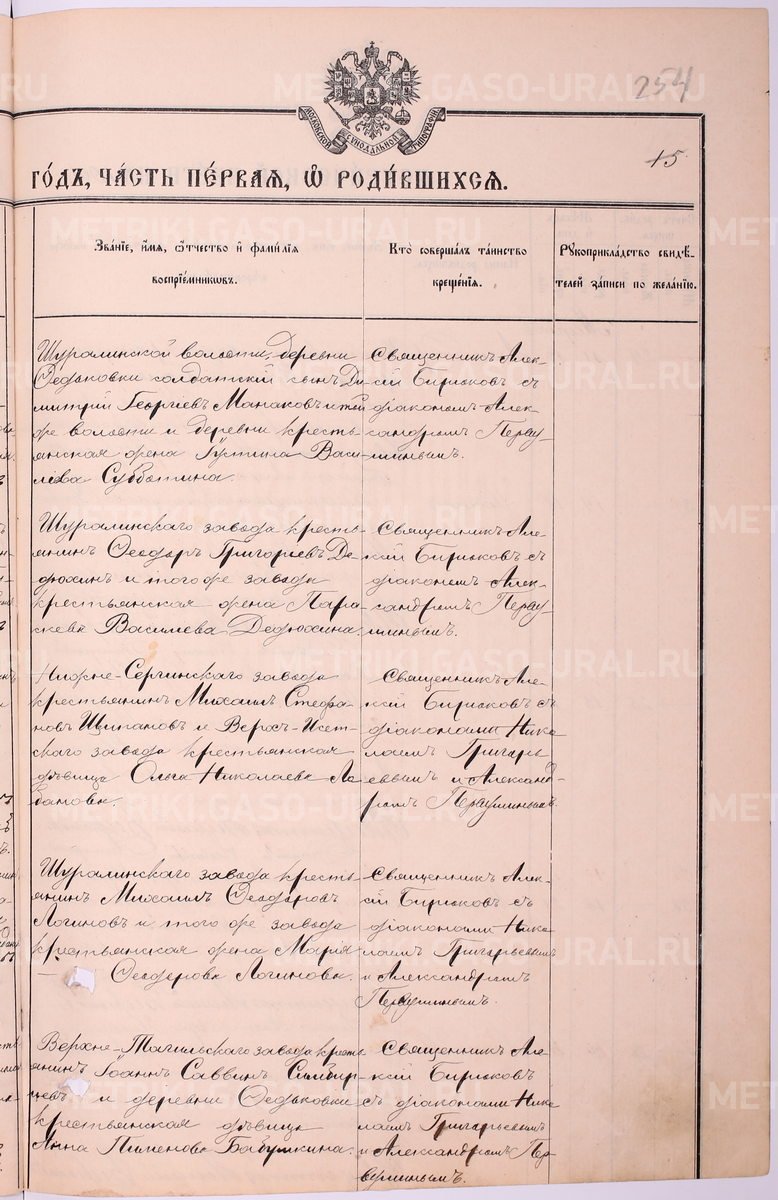 254
МОСКОВСКОЙ СѴНОДАЛЬНОЙ ТИПОГРАФІИ
15
ГО́ДЪ, ЧА́СТЬ ПЕ́РВАЯ, Ѡ҆ РОДИ́ВШИХСЯ.
Зва́ніе, и҆́мя, ѻ҆́тчество и҆ фами́лія
воспріе́мниковъ.
Кто̀ соверша́лъ та́инство
креще́нія.
Рꙋкоприкла́дство свидѣ́-
телей за́писи по жела́нію.
Шуралинской волости, деревни
Федьковки солдатскій сынъ Ди-
митрій Георгіевъ Манаковъ и той
же волости и деревни кресть-
янская жена Іустина Васи-
лева Субботина.
Священникъ Алек-
сій Бирюковъ съ
діакономъ Алек-
сандромъ Перву-
шинымъ.
Шуралинскаго завода кресть-
янинъ Ѳеодоръ Григоріевъ Де-
дюхинъ и того же завода
крестьянская жена Пара-
скева Василева Дедюхина.
Священникъ Але-
ксій Бирюковъ съ
діакономъ Алек-
сандромъ Перву-
шинымъ.
Нижне-Сергинскаго завода
крестьянинъ Михаилъ Стефа-
новъ Щипановъ и Верхъ-Исет-
скаго завода крестьянская
дѣвица Ольга Николаева Ло-
банова.
Священникъ Але-
ксій Бирюковъ съ
діаконами Нико-
лаемъ Григорь-
евымъ и Александ-
ромъ Первушинымъ.
Шуралинскаго завода кресть-
янинъ Михаилъ Ѳеодоровъ
Логиновъ и того же завода
крестьянская жена Марія
Ѳеодорова Логинова.
Священникъ Алек-
сій Бирюковъ съ
діаконами Нико-
лаемъ Григорьевымъ
и Александромъ
Первушинымъ.
Верхне-Тагильскаго завода кресть-
янинъ Іоаннъ Саввинъ
и деревни Федьковки
крестьянская дѣвица
Анна Пименова Бабушкина.
Священникъ Але-
ксій Бирюковъ
съ діаконами Нико-
лаемъ Григорьевымъ
и Александромъ Пер-
вушинымъ.
METRIKI.GASO-URAL.RU